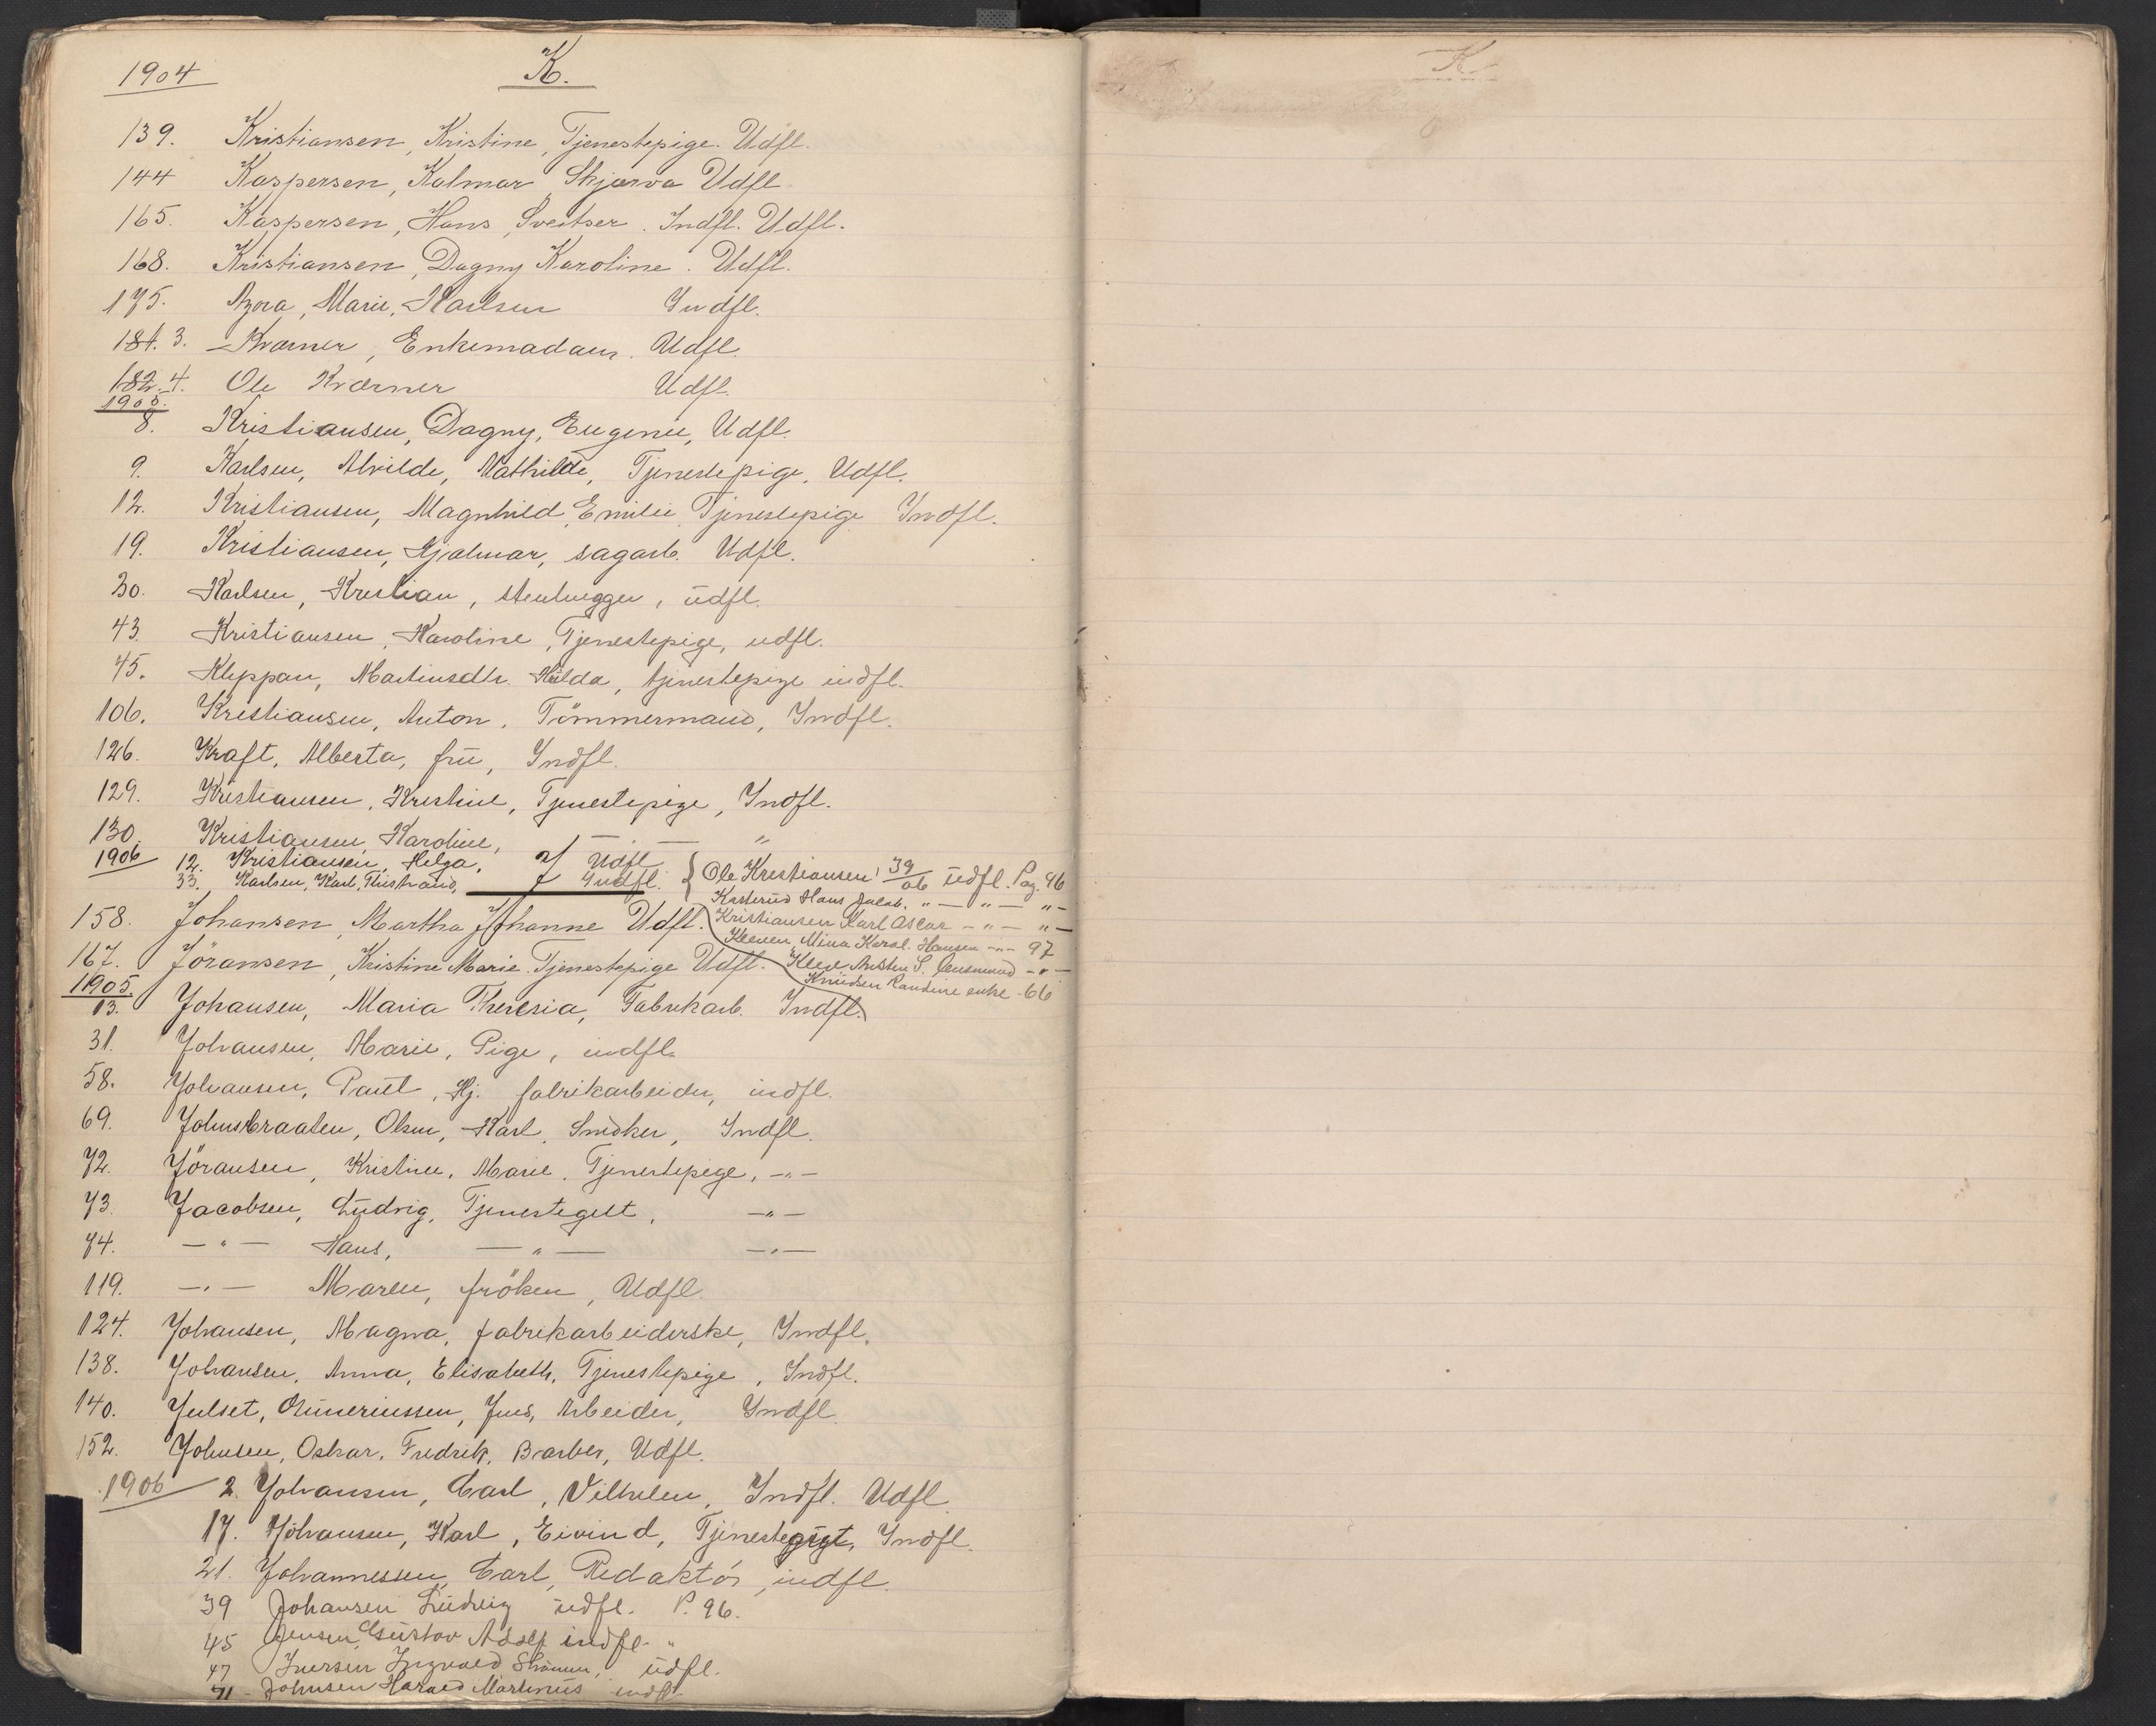 1904 K.
139. Kristiansen, Kristine, Tjenestepige. Udfl.
144 Kaspersen, Kalmar Skjærva Udfl
165. Kaspersen, Hans, Sveitser. Indfl. Udfl.
168. Kristiansen, Dagny Karoline. Udfl.
175. Azora, Marie, Karlsen Indfl.
184. 3. Kværner, Enkemadam. Udfl.
182. 4. Ole Kværner Udfl.
1905.
8. Kristiansen, Dagny, Eugenie, Udfl.
9. Karlsen, Alvilde, Mathilde, Tjenestepige, Udfl.
12. Kristiansen, Magnhild Emilie Tjenestepige Indfl.
19. Kristiansen, Hjalmar, sagarb. Udfl.
30. Karlsen, Kristian, stenhugger, udfl.
43. Kristiansen, Karoline, Tjenestepige, udfl.
45. Kleppan, Martinsdtr. Hilda, tjenestepige indfl.
106. Kristiansen, Anton, Tömmermand, Indfl.
126. Kraft, Alberta, frue, Indfl.
129. Kristiansen, Kristine, Tjenestepige, Indfl.
130. Kristiansen, Karoline, — " — "
1906 12. Kristiansen, Helga, Udfl
33. Karlsen, Karl, Indfl. { Ole Kristiansen 39/06 udfl. Pag. 96
Hans Jacob. " — " — " —
158. Johansen, Martha Johanne Udfl. Kristiansen Karl Oscar — " — " —
Mina Karol. Hansen — " — 97
167. Jöransen, Kristine Marie. Tjenestepige Udfl. — " —
Knudsen Randine enke - 66
1905.
13. Johansen, Maria Theresia, Fabrikarb. Indfl.
31. Johansen, Marie, Pige, indfl.
58. Johansen, Paul, Hj. fabrikarbeider, indfl.
69. Johnsbraaten, Olsen, Karl, Snidker, Indfl.
72. Jöransen, Kristine, Marie, Tjenestepige, — " —
73. Jacobsen, Ludvig, Tjenestegut, — " —
74. — " — Hans, — " — — " —
119. — " — Maren, fröken, Udfl.
124. Johansen, Magna, fabrikarbeiderske, Indfl.
138. Johansen, Anna, Elisabeth, Tjenestepige, Indfl.
140. Julset, Jens, Arbeider, Indfl
152. Johnsen, Oskar, Fredrik, Barber, Udfl.
1906 2. Johansen, Carl, Vilhelm, Indfl. Udfl
17. Johansen, Karl, Eivind, Tjenestegut, Indfl.
21. Johannessen, Carl, Redaktör, indfl.
39 Johansen Ludvig udfl. P. 96.
45 Jensen, Gustav Adolf indfl. "
47 Iversen Ingvald udfl.
71 - Johnsen Harald Martinius indfl.
K.